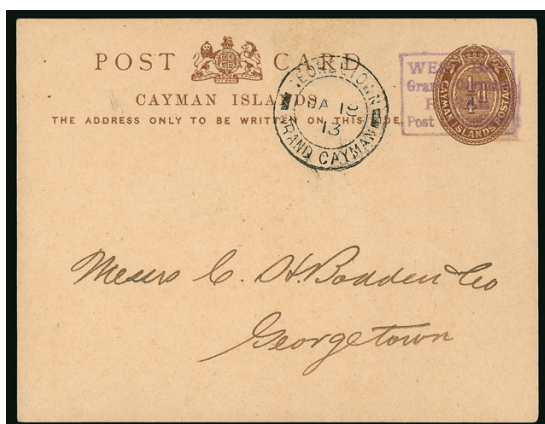 POST CARD
CAYMAN ISLANDS
THE ADDRESS ONLY TO BE WRITTEN ON THIS SIDE.
GEORGETOWN
JA 12
13
GRAND CAYMAN
Post
½d
CAYMAN ISLANDS POSTAGE
Messrs C. H. Bodden & Co
Georgetown